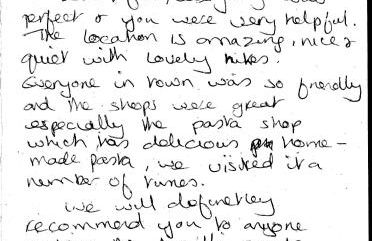 perfect & you were very helpful.
The location is amazing, nice &
quiet with lovely hikes.
Everyone in town was so friendly
and the shops were great
especially the pasta shop
which has delicious home-
made pasta, we visited it a
number of times.
we will definetley
recommend you to anyone